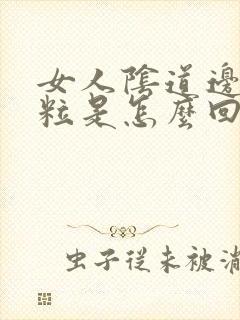 女人陰道邊
粒是怎麼回
虫子從未被滿